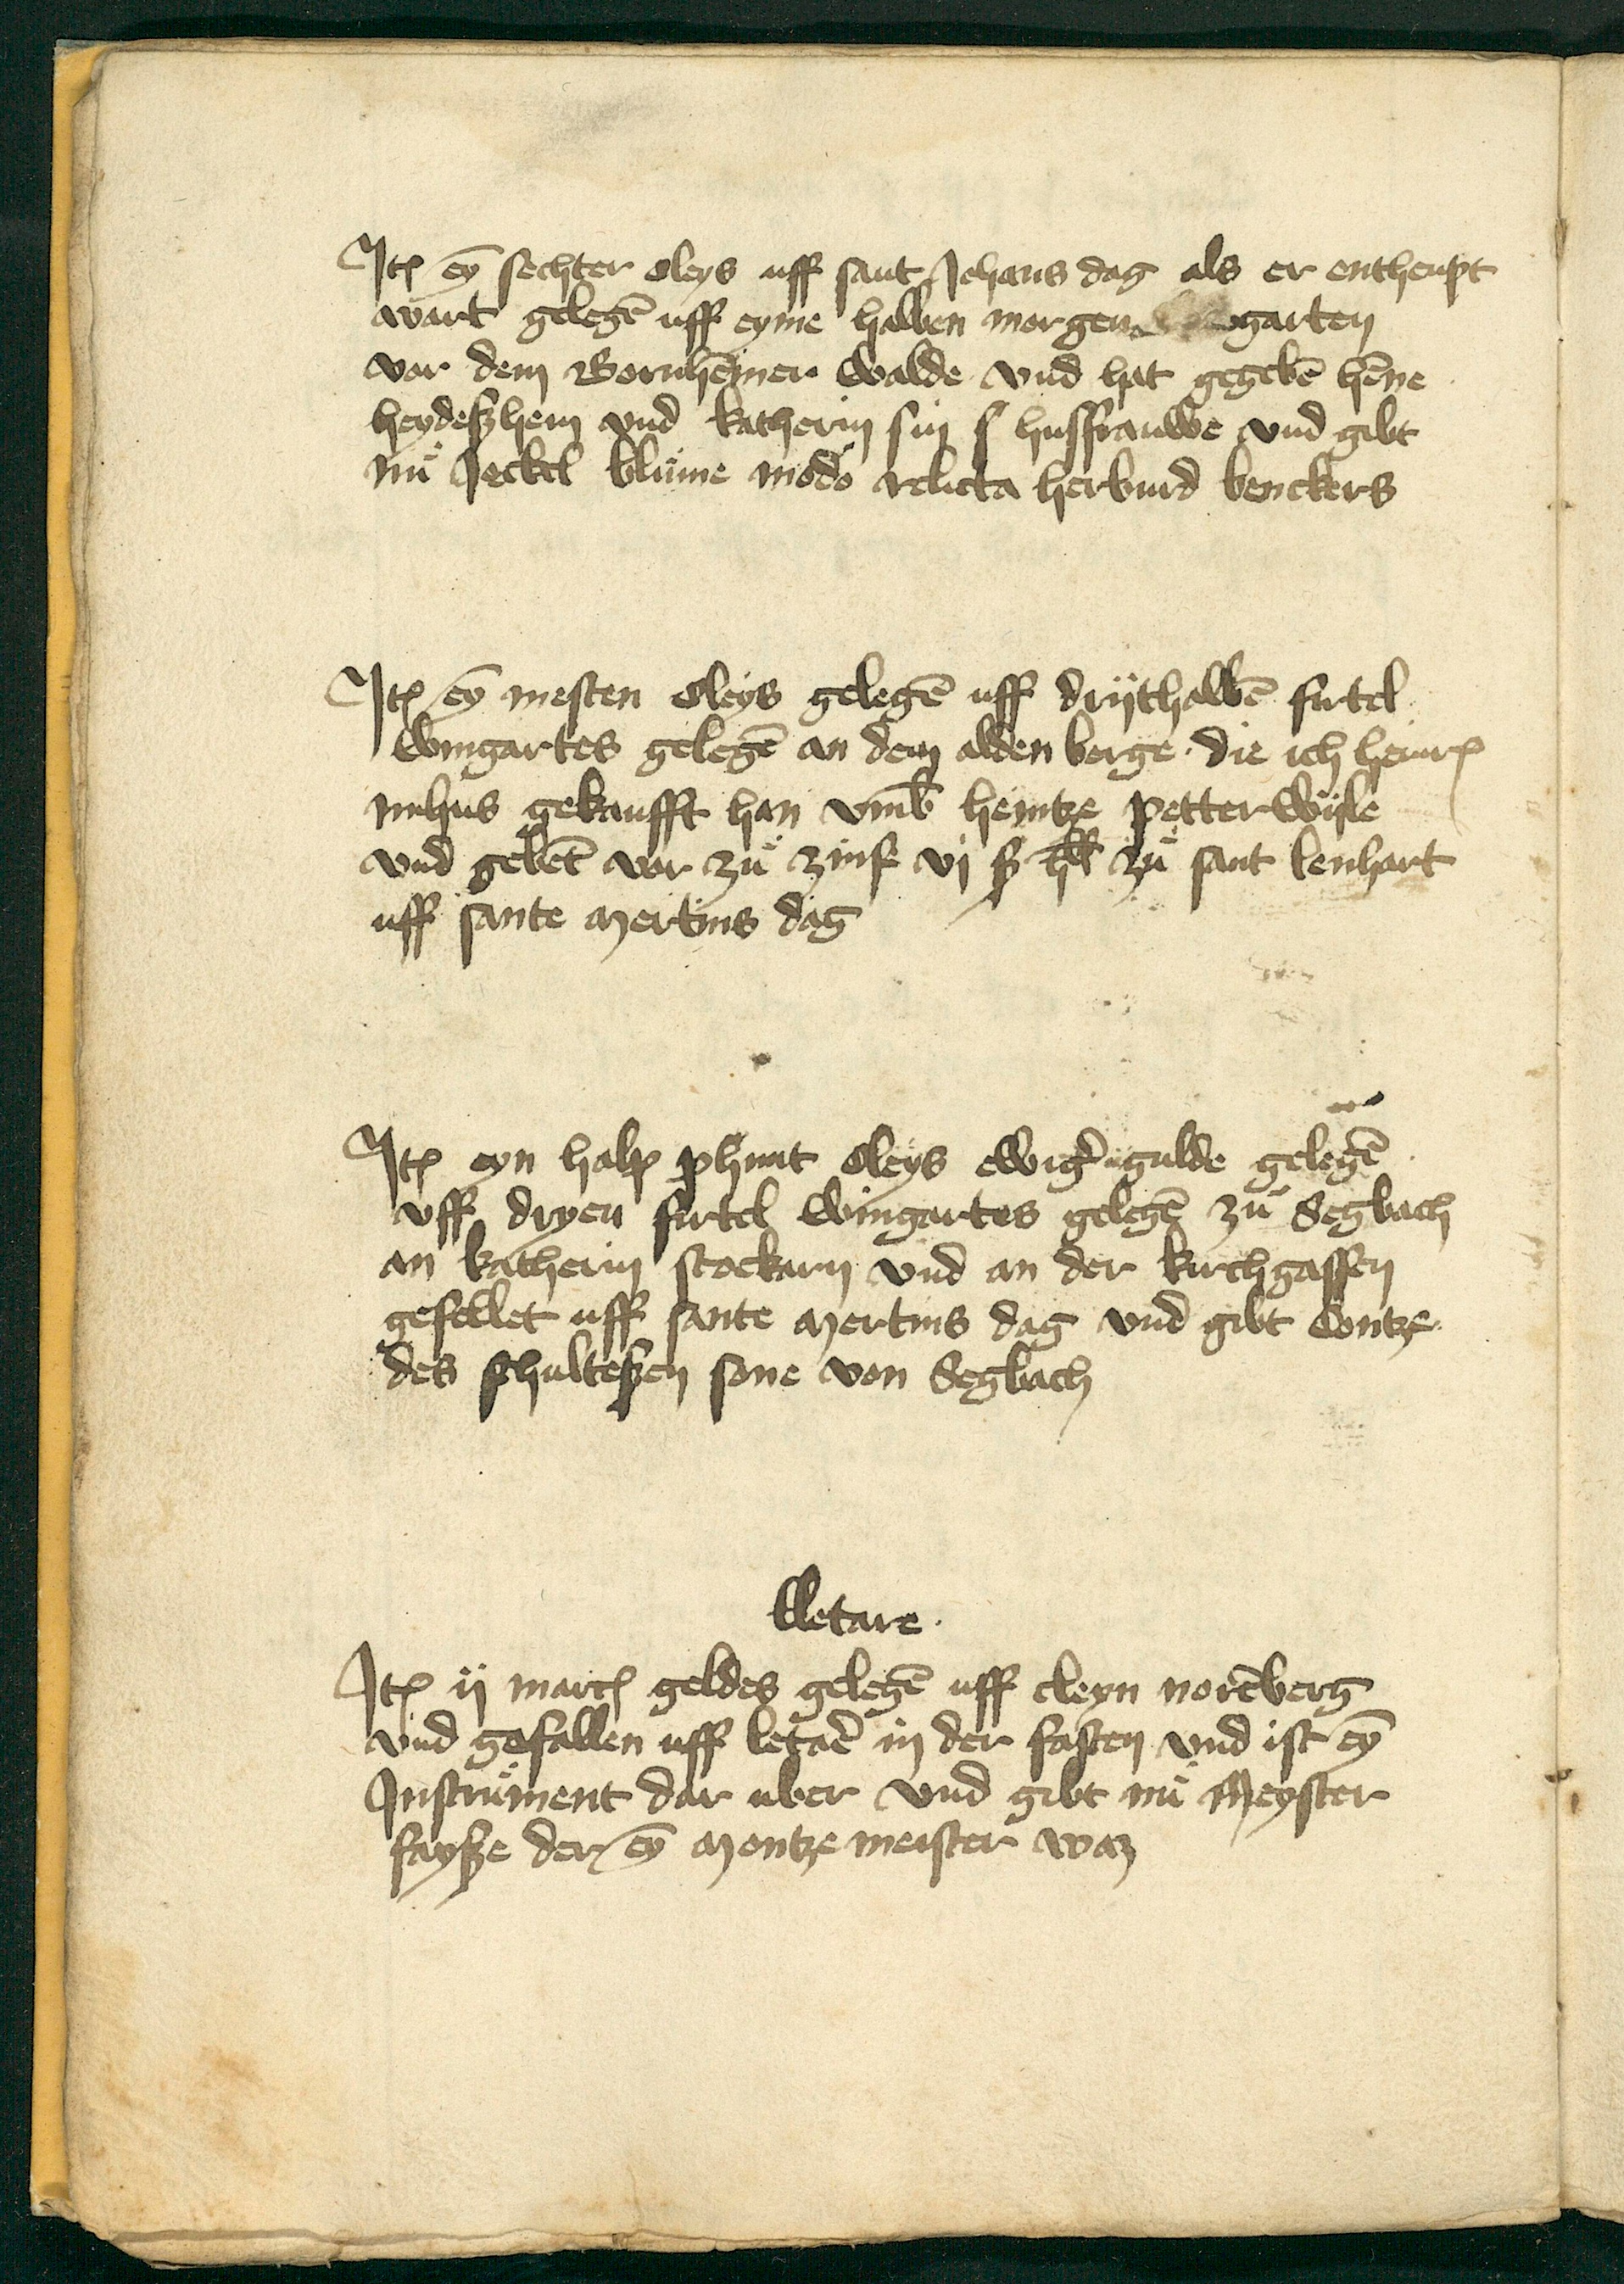 Itē eȳ sechter oleys uff sant Johans dag als er entheupt
wart gelegē uff eyme halben morgen garten
vor dem Bornheymer walde vnd hat gegebē hēne
heydeßhem vnd katherin sin husfrauwe vnd gibt
nu Jeckel blume modo relicta herburd benckers
Itē eȳ mesten oleys gelegē uff drythalbē firtel
wingartes gelegē an dem alden berge die ich heinr
nuhus gekaufft han vmb heintze petterwyle
vnd gebēt vor zu zinse vi ß hll zu sant lenhart
uff sante mertins dag
Itē eyn halp phunt oleys ewig gulde gelegē
vff dryen firtel wingartes gelegē zu Segbach
an katherin stockarn vnd an der kirchgassen
gefellet uff sante mertins dag vnd gibt Contze
des schulteßen sone von Segbach
lletare
Itē ij marc geldes gelegē uff cleyn norēberg
vnd gefallen uff letaē in der fasten vnd ist eȳ
Instrument dar uber vnd gibt nu Meyster
fayße der eȳ montze meister waz